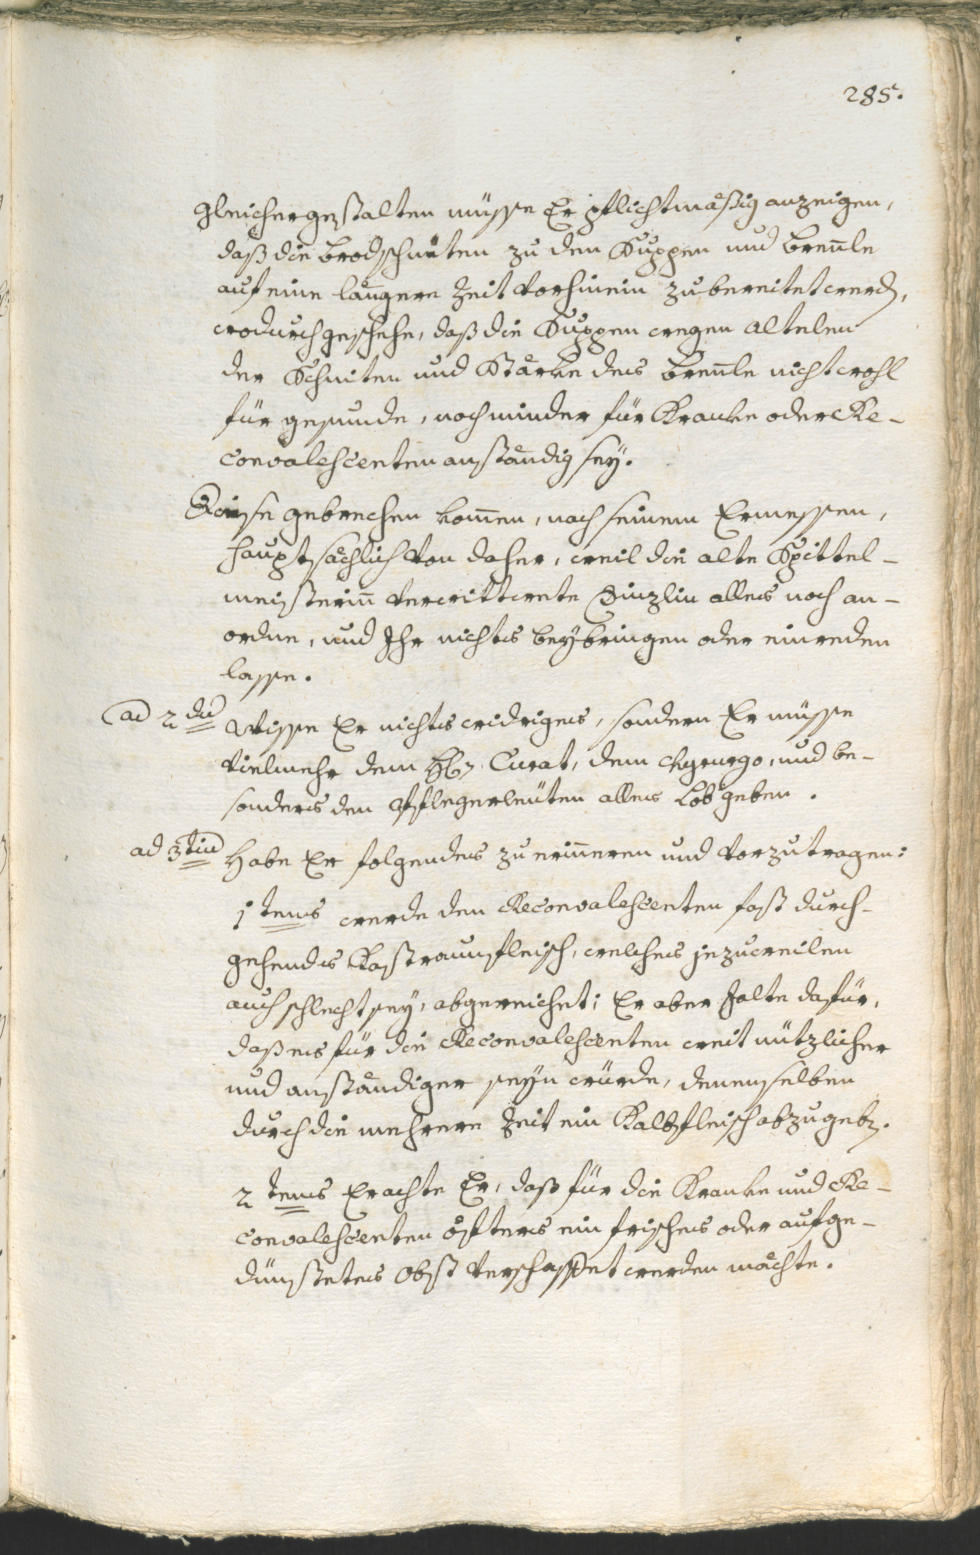 285.
Gleichergestalten müsse Er pflichtmäßig anzeigen,
daß die brodschniten zu den Suppen und brennle
auf eine längere Zeit vorhinein zubereitet werd,
wodurch geschehe, daß die Suppen wegen altelen
der Schniten und Stärke des brennle nicht wohl
für gesunde, noch minder für Kranke oder Re-
convalescenten anständig sey.
Diese gebrechen komen, nach seinem Ermessen,
hauptsächlich von daher, weil die alte Spittel-
meisterin verwittwete Hinzlin alles noch an-
ordne, und Ihr nichts beybringen oder einreden
lasse.
ad 2du Wisse Er nichts widriges, sondern Er müsse
vielmehr dem H. Curat, dem Chyrurgo, und be-
sonders den Pflegerleuten alles Lob geben.
ad 3tiu Habe Er folgendes zu erinneren und vorzutragen:
1tens werde den Reconvalescenten fast durch-
gehends Kastraunfleisch, welches jezuweilen
auch schlecht sey, abgereichet; Er aber halte dafür,
daß es für die Reconvalescenten weit nützlicher
und anständiger seyn würde, denenselben
durch die mehrere Zeit ein Kalbfleisch abzugeb.
2tens Erachte Er, daß für die Kranke und Re-
convalescenten öfters ein frisches oder aufge-
dünstetes Obst verschaffet werden möchte.